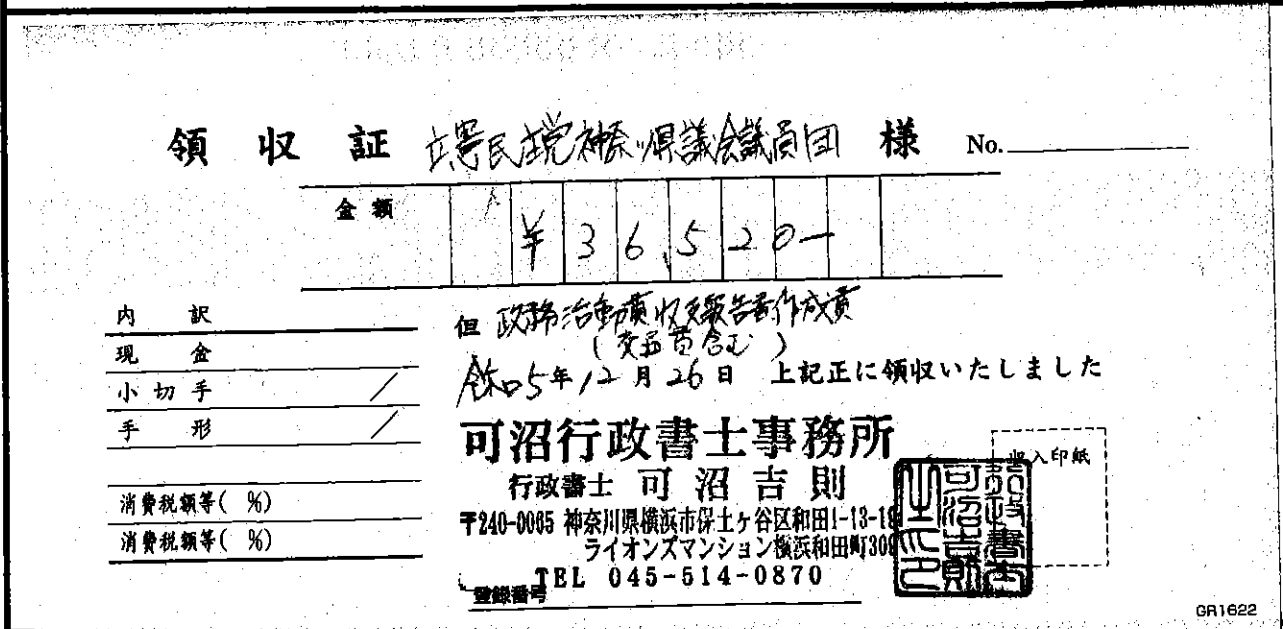 領収証 立憲民主党神奈川県議会議員団 様 No.
金額 ¥36,520-
内訳
現金
小切手
手形
消費税額等( %)
消費税額等( %)
但 政務活動費収支報告書作成費
(交通費含む)
令和5年12月26日 上記正に領収いたしました
可沼行政書士事務所
行政書士 可沼吉則
〒240-0065 神奈川県横浜市保土ヶ谷区和田1-13-18
ライオンズマンション横浜和田町309
TEL 045-514-0870
登録番号
収入印紙
行政書士可沼吉則之印
GR1622